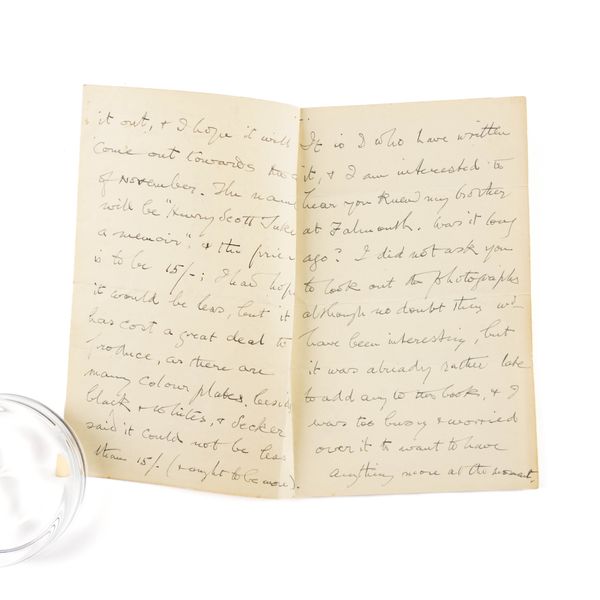 it out, & I hope it will
come out towards
of November. The name
will be "Henry Scott Tuke
a memoir", & the price
is to be 15/-; I had hoped
it would be less, but it
has cost a great deal to
produce, as there are
many colour plates. beside
black & whites, & Secker
said it could not be less
than 15/- (& ought to be more).
It is I who have written
it, & I am interested to
hear you knew my brother
at Falmouth. Was it long
ago? I did not ask you
to look out the photographs
although no doubt they wd
have been interesting, but
it was already rather late
to add any to the book, & I
was too busy & worried
over it to want to have
anything more at the moment,